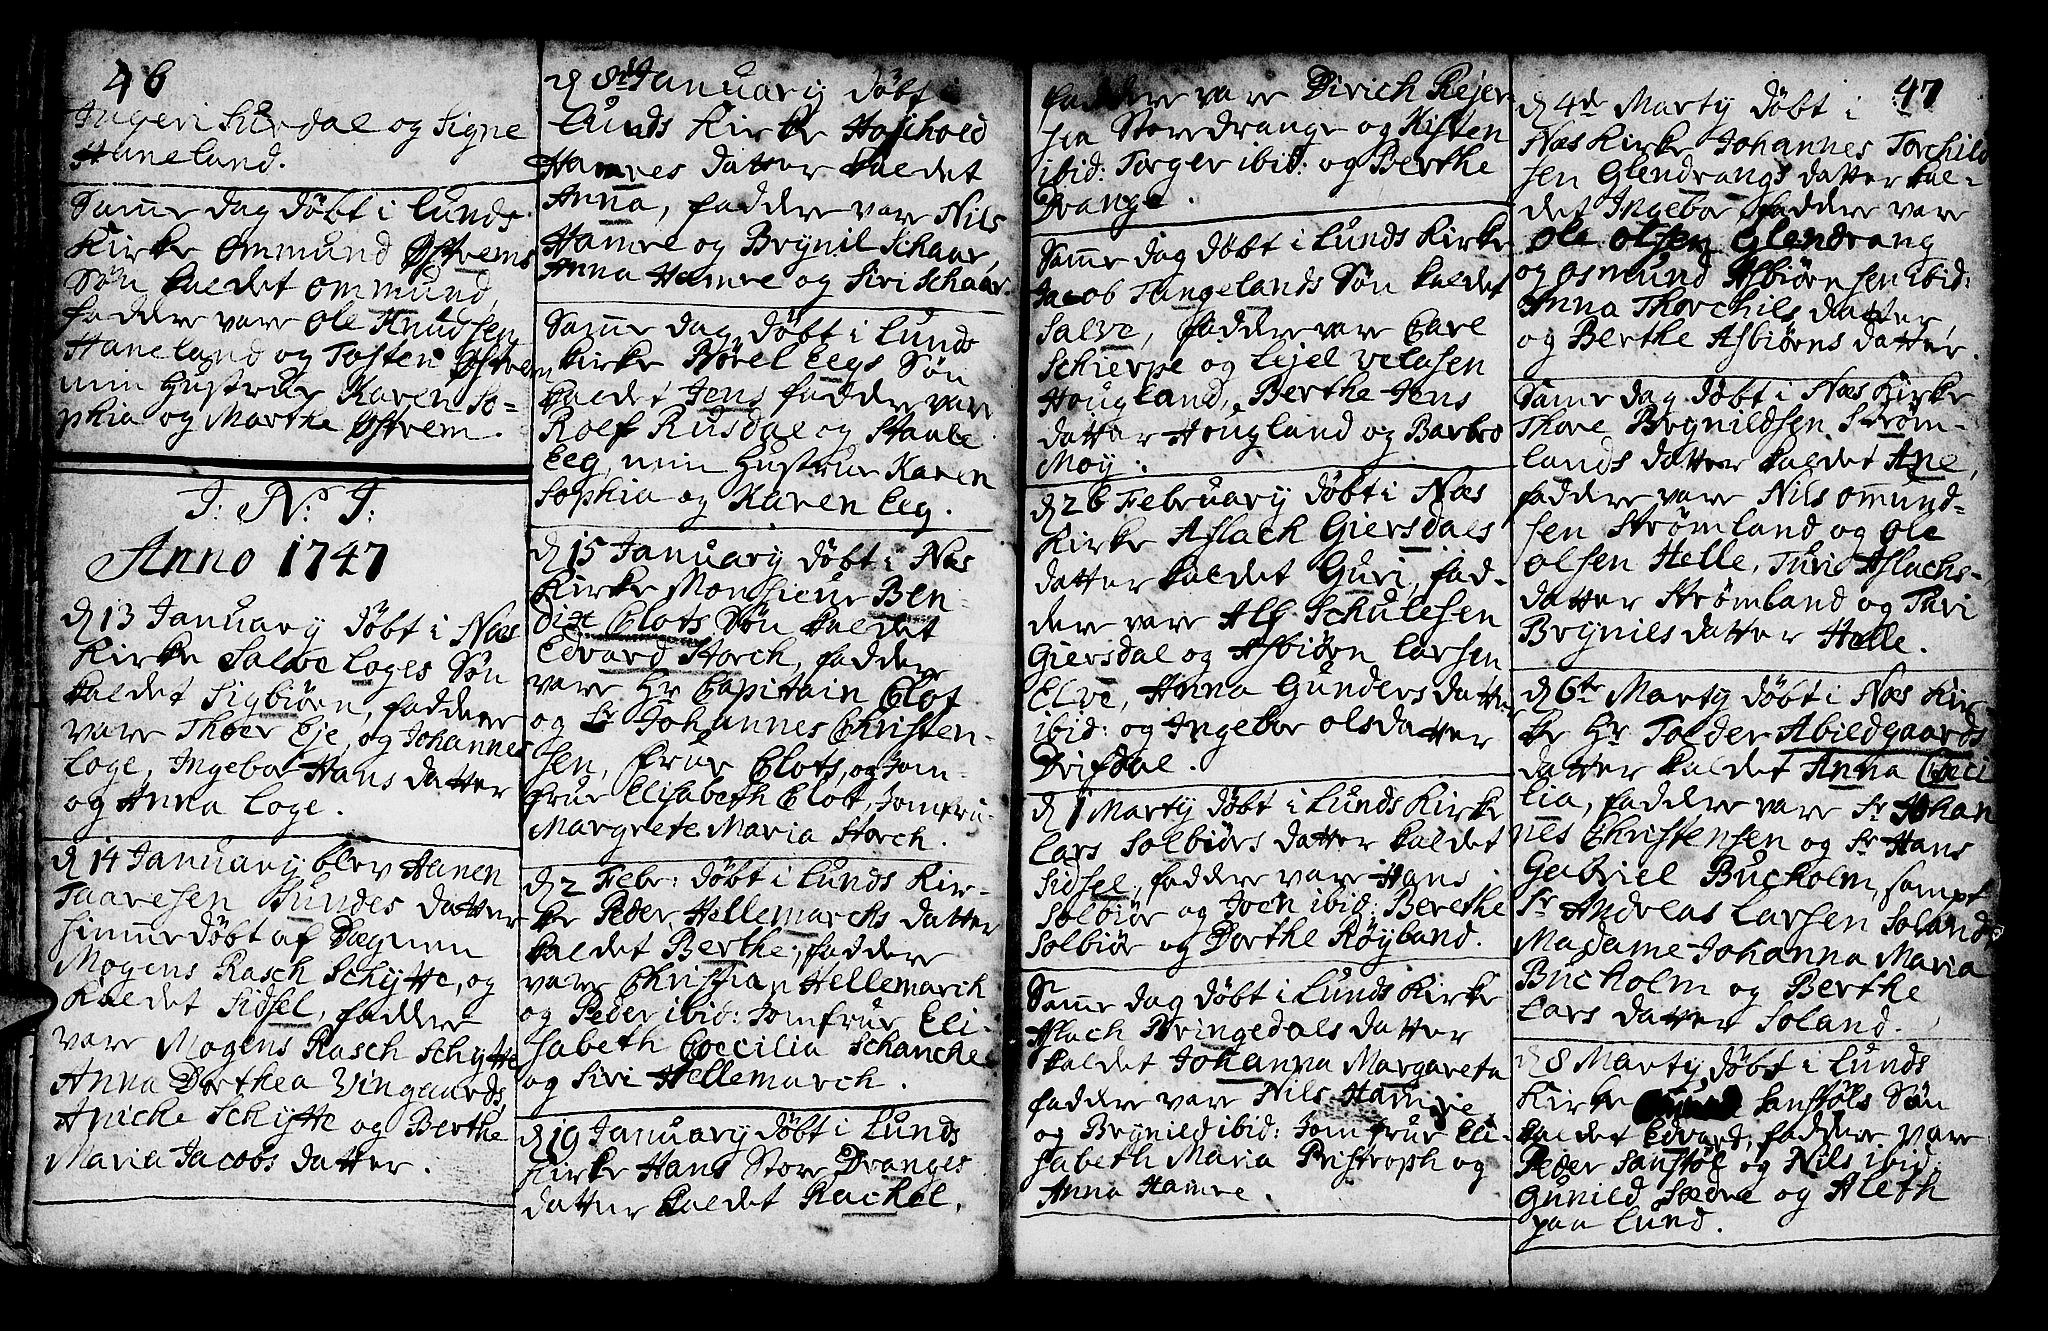 46
Ingeri Surdal og Signe
Haneland.
Samme dag døbt i Lunds
Kirke Ommund Østrems
Søn kaldet Ommund,
faddere vare Ole Knudsen
Haneland og Tosten Østrem
min Hustrue Karen So-
phia og Marthe Østrem.
J. N. J.
Anno 1747
d 13 January døbt i Næs
Kirke Salve Loges Søn
kaldet Sigbiörn, faddere
vare Thoer Eje, og Johannes
Loge, Ingebor Hans datter
og Anna Loge.
d 14 January blev Hanen
Taaresen Sundes datter
himme døbt af Degnen
Mogens Rasch Schytte, og
kaldet Sidsel, faddere
vare Mogens Rasch Schytte
Anna Dorthea Vingaards,
Anicke Schytte og Berthe
Maria Jacobs datter.
d 8de January døbt i
Lunds Kirke Hoschold
Hamres datter kaldet
Anna, faddere vare Nils
Hamre og Brynil Schaar,
Anna Hamre og Siri Schaar.
Samme dag døbt i Lunds
Kirke Norel Eegs Søn
kaldet Jens faddere vare
Roef Rusdal og Staale
Eeg, min Hustrue Karen
Sophia og Karen Eeg.
d 15 January døbt i Næs
Kirke Monsieur Ben-
dixt Clots Søn kaldet
Edvard Storch, faddere
vare Hr Capitain Clot
og Sr Johannes Christen-
sen, frue Clots, og Jom-
frue Elisabeth Clot, Jomfru
Margrete Maria Storch.
d 2 Febr: døbt i Lunds Kir-
ke Peder Hellemarchs datter
kaldet Berthe, faddere
vare Christian Hellemarch
og Peder ibid: Jomfrue Eli-
sabeth Coecilia Schanche
og Siri Hellemarch.
d 19 January døbt i Lunds
Kirke Hans Store Dranges
datter kaldet Rachel,
47
faddere vare Dirich Rejer-
sen Storedrange og Kisten
ibid: Torger ibid: og Berthe
Drange.
Samme dag døbt i Lunds Kirke
Jacob Tangelands Søn kaldet
Salve, faddere vare Carl
Schierpe og Ejel Velasen
Hougland, Berthe Jens
datter Hougland og Barbro
Moy.
d 26 February døbt i Næs
Kirke Aslach Giersdals
datter kaldet Guri, fad-
dere vare Alf Schulesen
Giersdal og Asbiörn Larsen
Elve, Anna Gunders datter
ibid: og Ingebor Olsdatter
Drifdal.
d 1 Marty døbt i Lunds Kirke
Lars Solbiörs datter kaldet
Sidsel, faddere vare Hans
Solbiör og Joen ibid: Berethe
Solbiör og Dorthe Röyland.
Samme dag døbt i Lunds Kirke
Aslach Bringedals datter
kaldet Johanna Margareta
faddere vare Nils Hamre
og Brynild ibid: Jomfrue Eli-
sabeth Maria Pristroph og
Anna Hamre.
d 4de Marty døbt i
Næs Kirke Johannes Torchild
sen Glendrangs datter kal-
det Ingebor faddere vare
Ole Olsen Glendrang
og Osmund Asbiörnsen ibid:
Anna Thorchils datter,
og Berthe Asbiörns datter.
Samme dag døbt i Næs Kirke
Thore Brynildsen Ström-
lands datter kaldet Ane,
faddere vare Nils Ommund-
sen Strömland og Ole
Olsen Helle, Turid Aslachs-
datter Strömland og Turi
Brynils datter Helle.
d 6te Marty døbt i Næs Kir-
ke Hr Tolder Abildgaards
datter kaldet Anna Cæci
lia, faddere vare Sr Johan
nes Christensen og Sr Hans
Gabriel Bucholm, sampt
Sr Andreas Larsen Soland
Madame Johanna Maria
Bucholm og Berthe
Lars datter Soland.
d 8 Marty døbt i Lunds
Kirke Sanstöls Søn
kaldet Edvard, faddere vare
Peder Sanstöl og Nils ibid:
Gunild Sædre og Aleth
paa Lund.